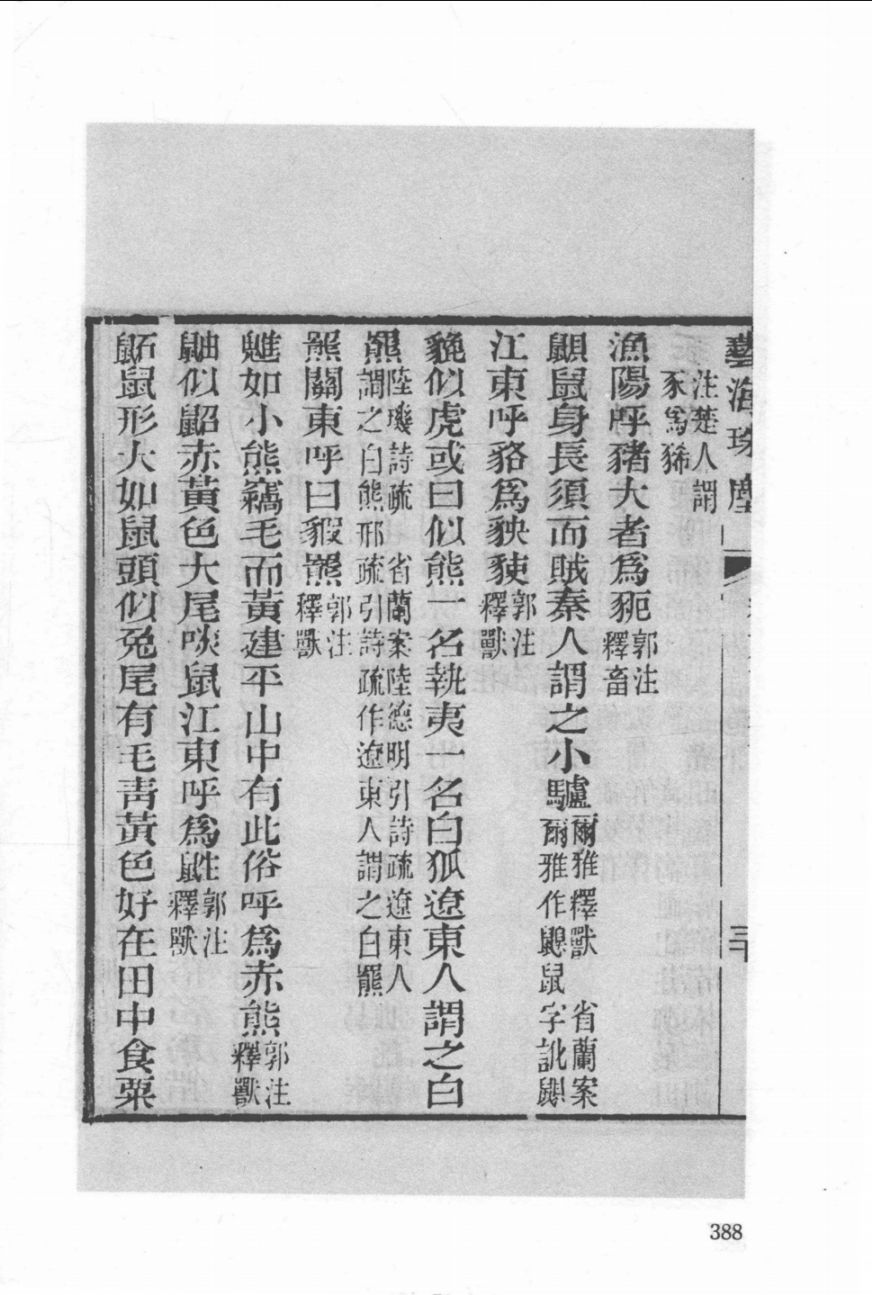 藝海珠塵
三十
注楚人謂
豕爲豨
漁陽呼豬大者爲豝郭注
釋畜
鼳鼠身長須而賊秦人謂之小驢爾雅釋獸 省蘭案
爾雅作鼳鼠字訛鼳
江東呼貉爲䝟䝠郭注
釋獸
貔似虎或曰似熊一名執夷一名白狐遼東人謂之白
羆陸璣詩疏 省蘭案陸德明引詩疏遼東人
謂之白熊邢疏引詩疏作遼東人謂之白羆
羆關東呼曰貑羆郭注
釋獸
魋如小熊竊毛而黃建平山中有此俗呼爲赤熊郭注
釋獸
鼬似鼦赤黃色大尾啖鼠江東呼爲鼪郭注
釋獸
鼫鼠形大如鼠頭似兔尾有毛青黃色好在田中食粟
388